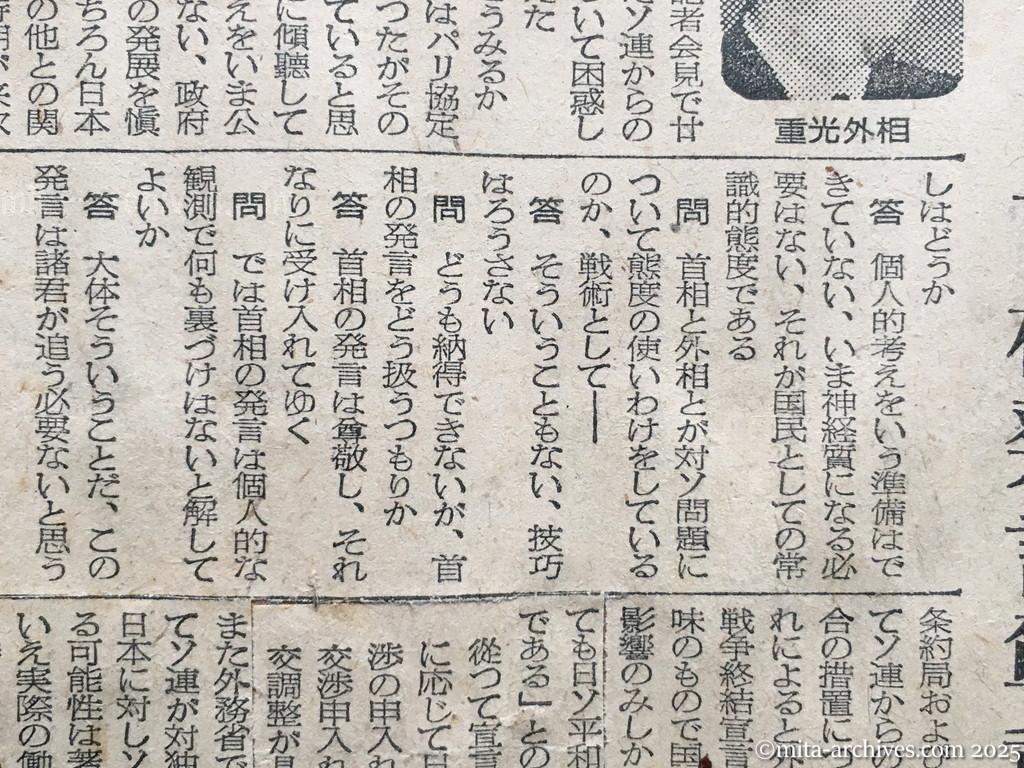 記者会見で甘
ソ連からの
いて困惑し
た
うみるか
はパリ協定
つたがその
ていると思
に傾聴して
えをいま公
ない、政府
の発展を慎
ちろん日本
の他との関
重光外相
しはどうか
答　個人的考えをいう準備はで
きていない、いま神経質になる必
要はない、それが国民としての常
識的態度である
問　首相と外相とが対ソ問題に
ついて態度の使いわけをしている
のか、戦術として――
答　そういうこともない、技巧
はろうさない
問　どうも納得できないが、首
相の発言をどう扱うつもりか
答　首相の発言は尊敬し、それ
なりに受け入れてゆく
問　では首相の発言は個人的な
観測で何も裏づけはないと解して
よいか
答　大体そういうことだ、この
発言は諸君が追う必要ないと思う
条約局およひ
てソ連からの
合の措置につ
れによると外
戦争終結宣言
味のもので国
影響のみしか
ても日ソ平和
である」との
従つて宣言
に応じて日
渉の申入れ
交渉申入れ
交調整が見
また外務省で
てソ連が対独
日本に対しソ
る可能性は著
いえ実際の働
©mita-archives.com 2025